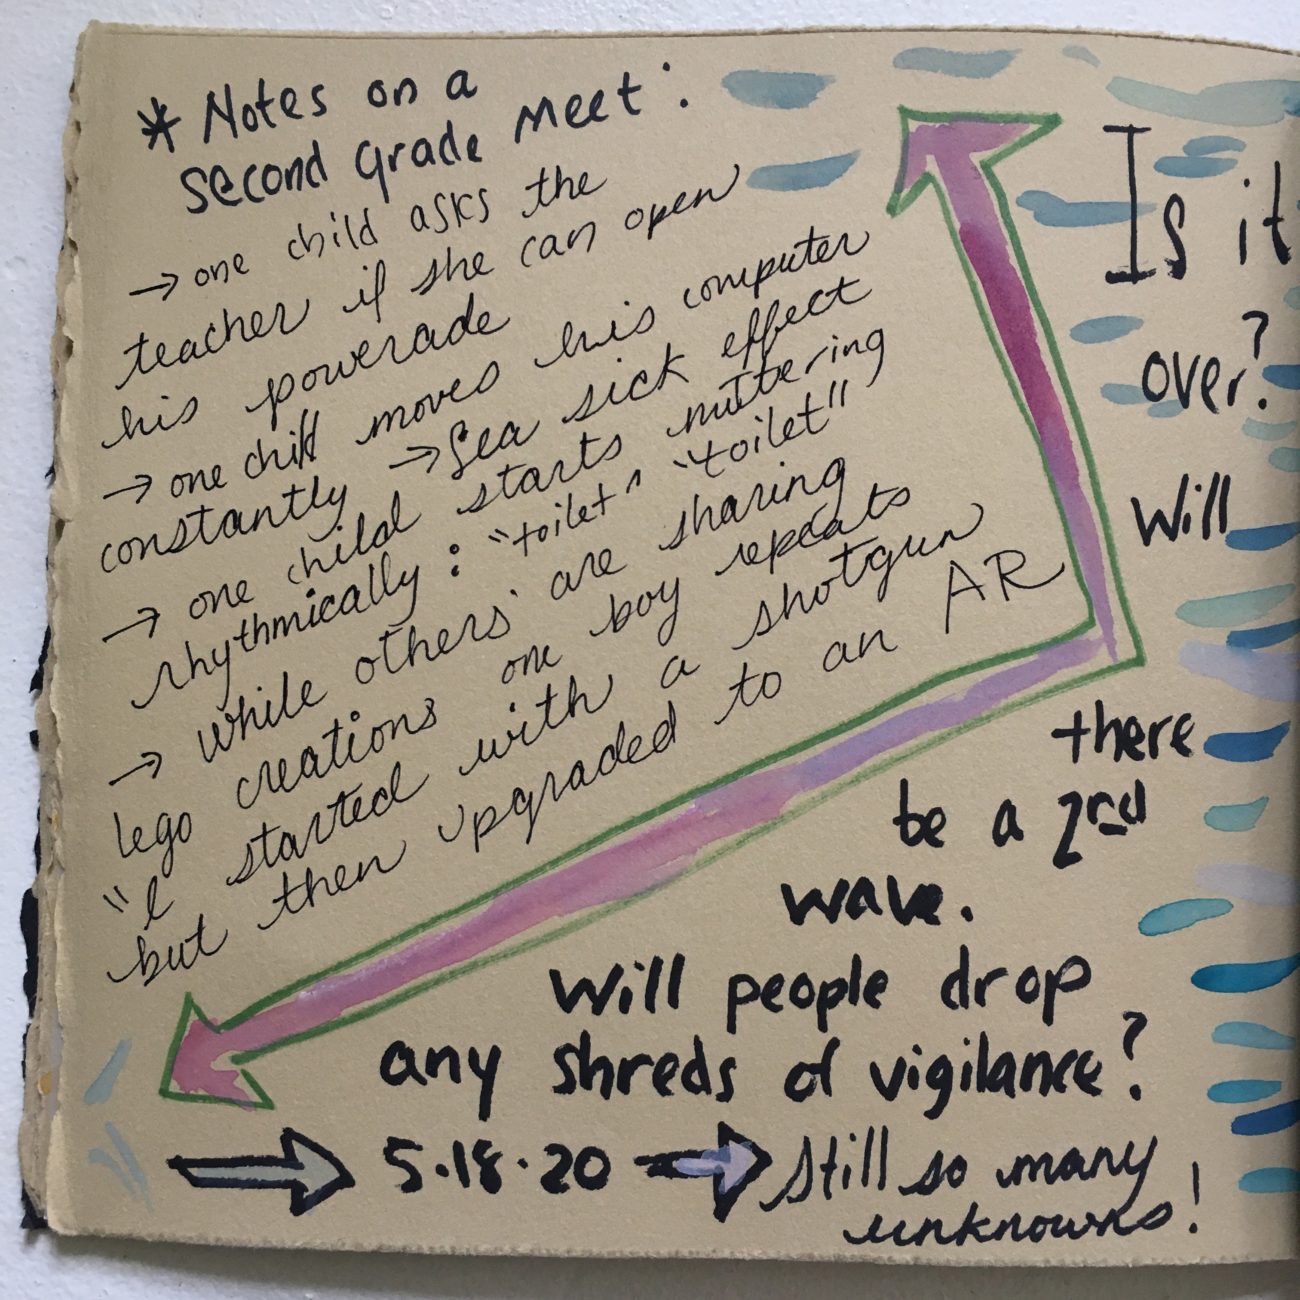 * Notes on a
second grade meet:
→ one child asks the
teacher if she can open
his powerade
→ one child moves his computer
constantly → Sea sick effect
→ one child starts muttering
rhythmically: "toilet" "toilet"
→ while others are sharing
lego creations one boy repeats
"I started with a shotgun
but then upgraded to an AR
Is it
over?
Will
there
be a 2nd
wave.
Will people drop
any shreds of vigilance?
→ 5.18.20 → Still so many
unknowns!